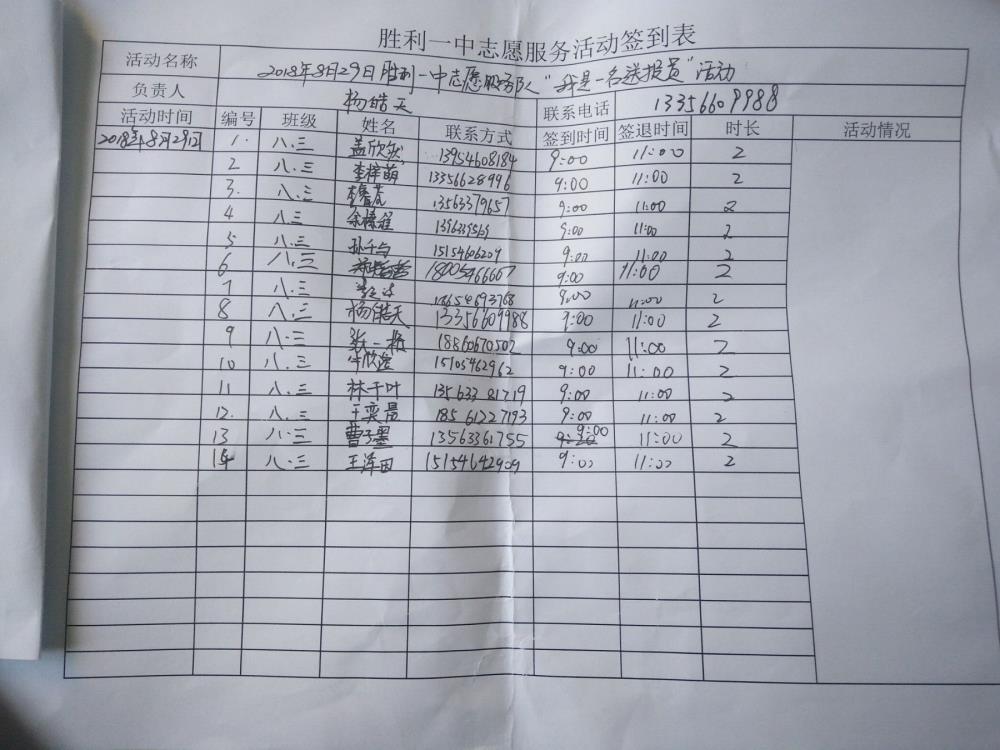 胜利一中志愿服务活动签到表
活动名称 2018年8月29日胜利一中志愿服务队"我是一名送报员"活动
负责人 杨皓天 联系电话 13356609988
活动时间 编号 班级 姓名 联系方式 签到时间 签退时间 时长 活动情况
2018年8月29日 1. 八.三 盖欣然 13954608184 9:00 11:00 2
2 八.三 李梓萌 13356628996 9:00 11:00 2
3. 八.三 13563379657 9:00 11:00 2
4 八三 9:00 11:00 2
5 八.三 孙千与 15154606209 9:00 11:00 2
6 八.三 18005466667 9:00 11:00 2
7 八.三 18654693768 9:00 11:00 2
8 八.三 杨皓天 13356609988 9:00 11:00 2
9 八.三 张一格 18860670502 9:00 11:00 2
10 八.三 15105462962 9:00 11:00 2
11 八.三 林千叶 13563381719 9:00 11:00 2
12. 八.三 王奕晨 18561227193 9:00 11:00 2
13 八.三 曹子墨 13563361755 9:00 11:00 2
14 八.三 王泽田 15154642909 9:00 11:00 2